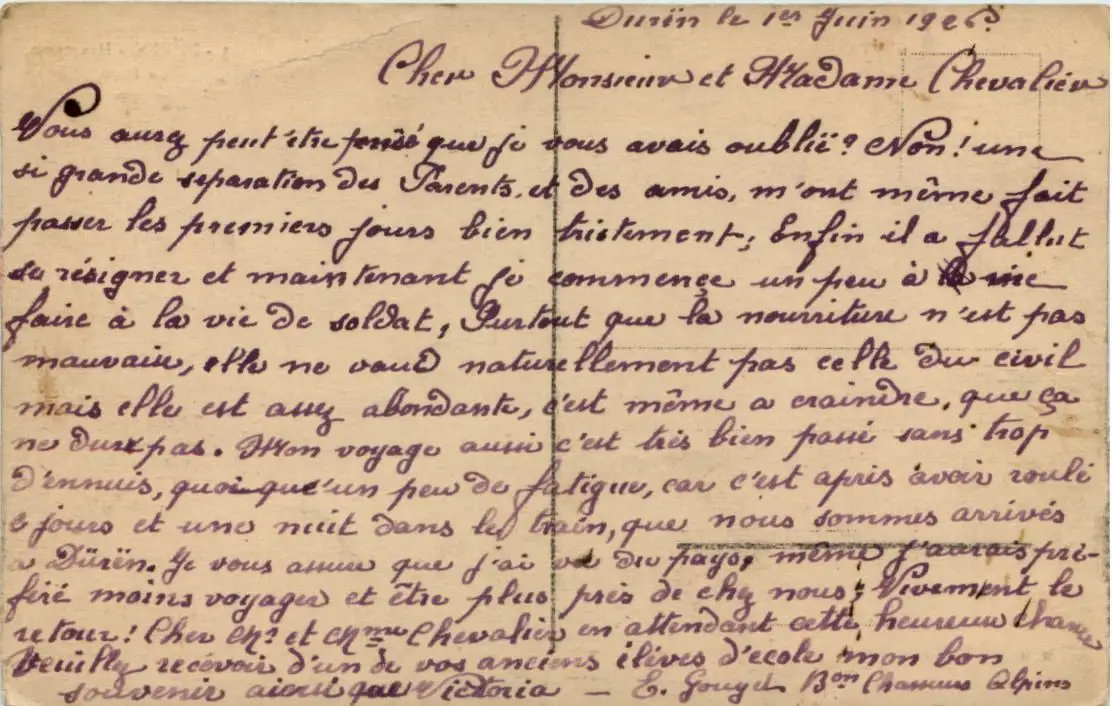 Durën le 1er Juin 1926
Cher Monsieur et Madame Chevalier
Vous aurez peut'être pensé que je vous avais oublié? Non! une
si grande separation des Parents, et des amis, m'ont même fait
passer les premiers jours bien tristement; Enfin il a fallut
se résigner et maintenant je commence un peu à me
faire à la vie de soldat, Surtout que la nourriture n'est pas
mauvaise, elle ne vaud naturellement pas celle du civil
mais elle est assez abondante, c'est même a craindre, que ça
ne dure pas. Mon voyage aussi c'est très bien passé sans trop
d'ennuis, quoi que'un peu de fatigue, car c'est après avoir roulé
2 jours et une nuit dans le train, que nous sommes arrivés
a Dürën. Je vous assure que j'ai vu du pays, même j'aurais pré-
féré moins voyager et être plus près de chez nous; Vivement le
retour! Cher Mr et Mme Chevalier en attendant cette heureuse chance
Veuillez recevoir d'un de vos anciens élèves d'ecole mon bon
souvenir ainsi que Victoria — E. Bon Chasseurs Alpins